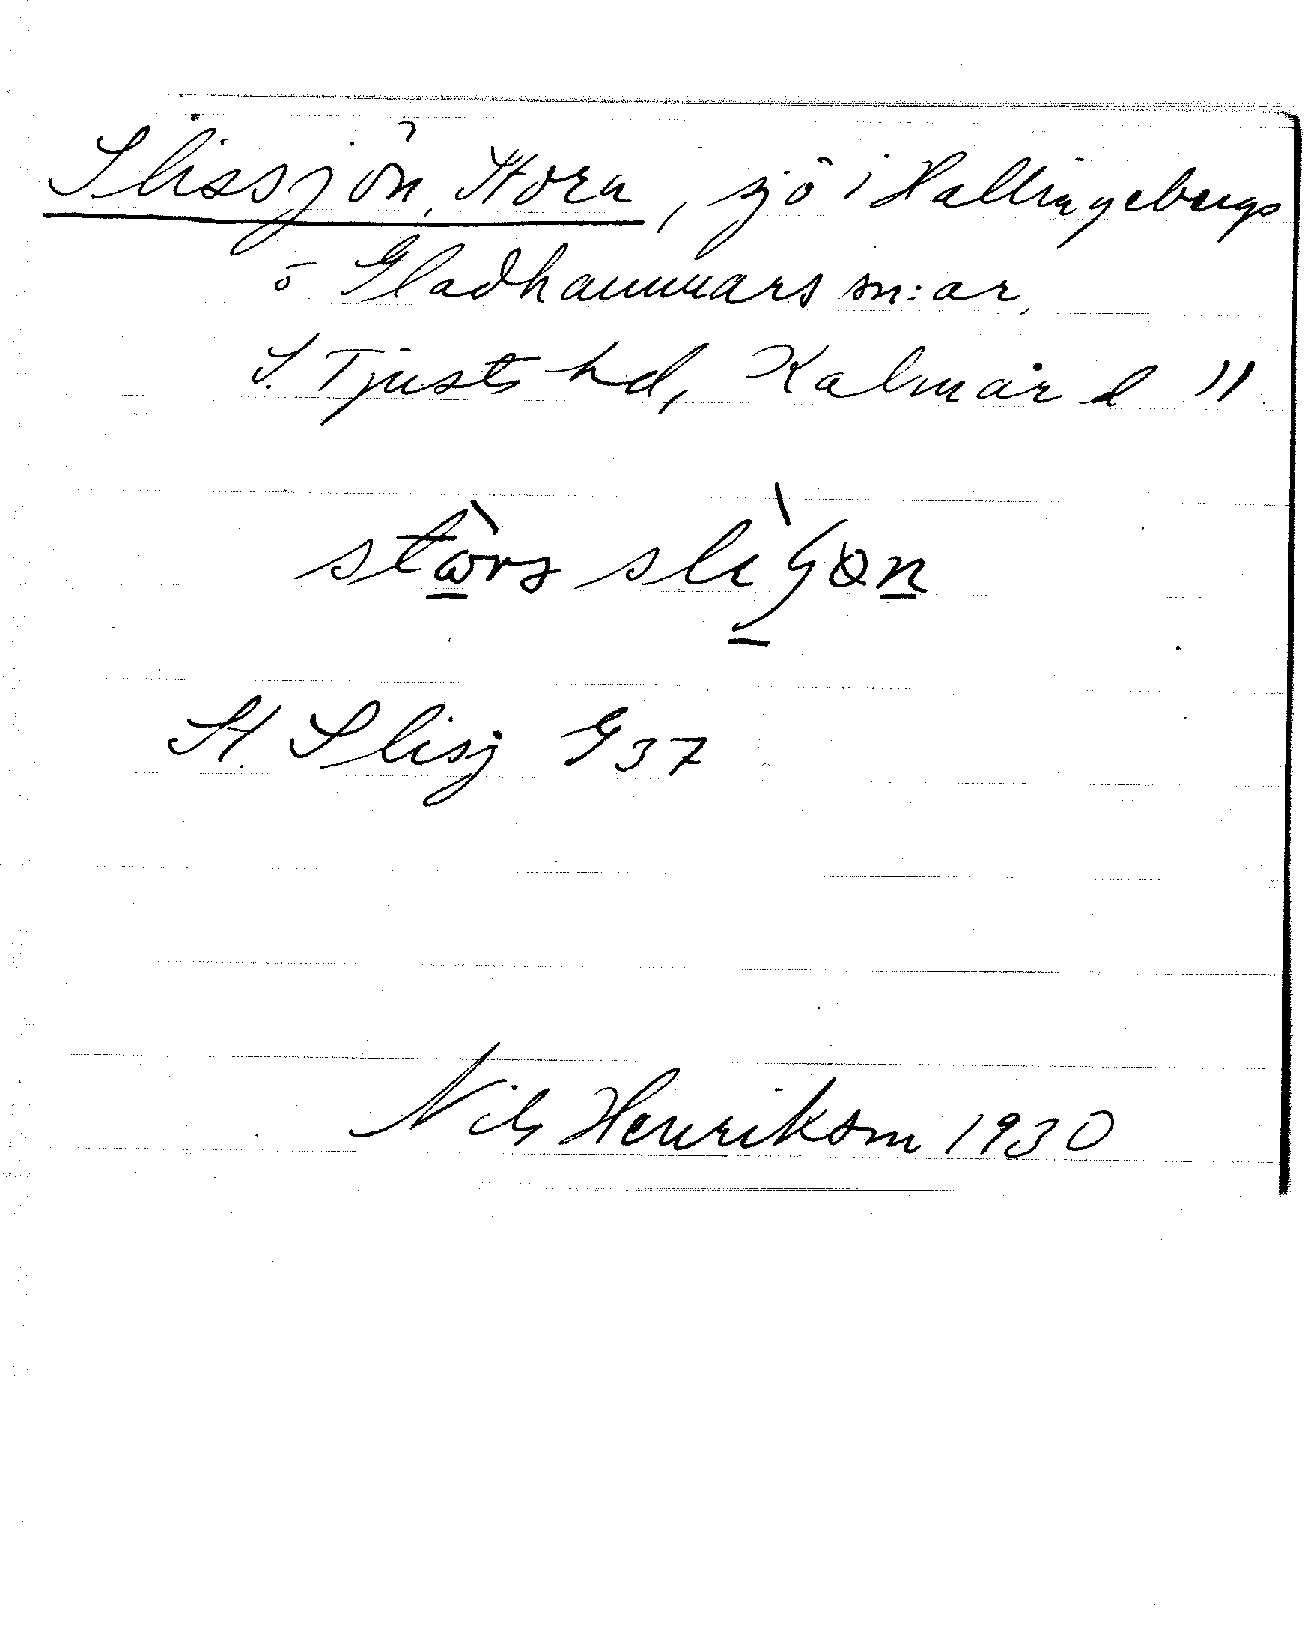 Slissjön, Stora, sjö i Hallingebergs
o Gladhammars sn:ar,
S. Tjusts hd, Kalmar l
St. Slisj G37
Nils Henrikson 1930